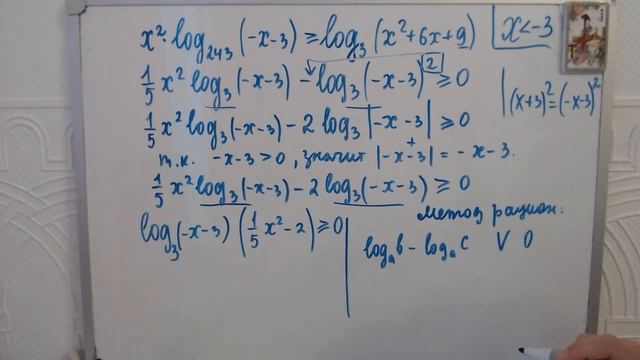 x²·log₂₄₃(-x-3) ≥ log₃(x²+6x+9)
x<-3
1/5 x² log₃(-x-3) - log₃(-x-3)² ≥ 0
(x+3)² = (-x-3)²
1/5 x² log₃(-x-3) - 2 log₃|-x-3| ≥ 0
т.к. -x-3>0, значит |-x-3| = -x-3.
+
1/5 x² log₃(-x-3) - 2 log₃(-x-3) ≥ 0
log₃(-x-3) (1/5 x² - 2) ≥ 0
метод рацион:
logₐb - logₐc V 0